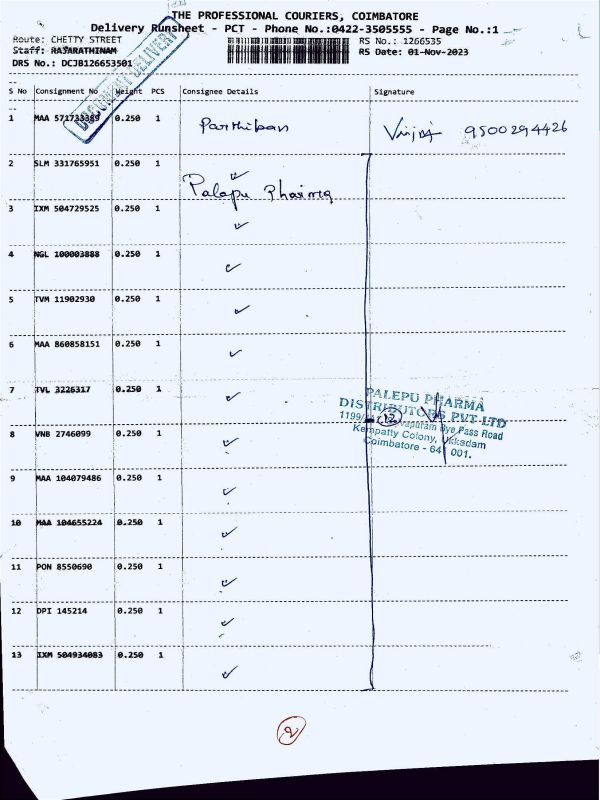 THE PROFESSIONAL COURIERS, COIMBATORE
Delivery Runsheet - PCT - Phone No.:0422-3505555 - Page No.:1
Route: CHETTY STREET
RS No.: 1266535
Staff: RAJARATHINAM
RS Date: 01-Nov-2023
DRS No.: DCJB126653501
DOCUMENT DELIVERY
S No Consignment No Weight PCS Consignee Details Signature
1 MAA 571733389 0.250 1 Parthiban 9500294426
2 SLM 331765951 0.250 1 ✓
Palepu Pharma
3 IXM 504729525 0.250 1 ✓
4 NGL 100003888 0.250 1 ✓
5 TVM 11902930 0.250 1 ✓
6 MAA 860858151 0.250 1 ✓
7 TVL 3226317 0.250 1 ✓
PALEPU PHARMA
DISTRIBUTORS PVT LTD
1199/ Bye Pass Road
12
Kempatty Colony, Ukkadam
Coimbatore - 641 001.
8 VNB 2746099 0.250 1 ✓
9 MAA 104079486 0.250 1 ✓
10 MAA 104655224 0.250 1 ✓
11 PON 8550690 0.250 1 ✓
12 DPI 145214 0.250 1 ✓
13 IXM 504934083 0.250 1 ✓
2